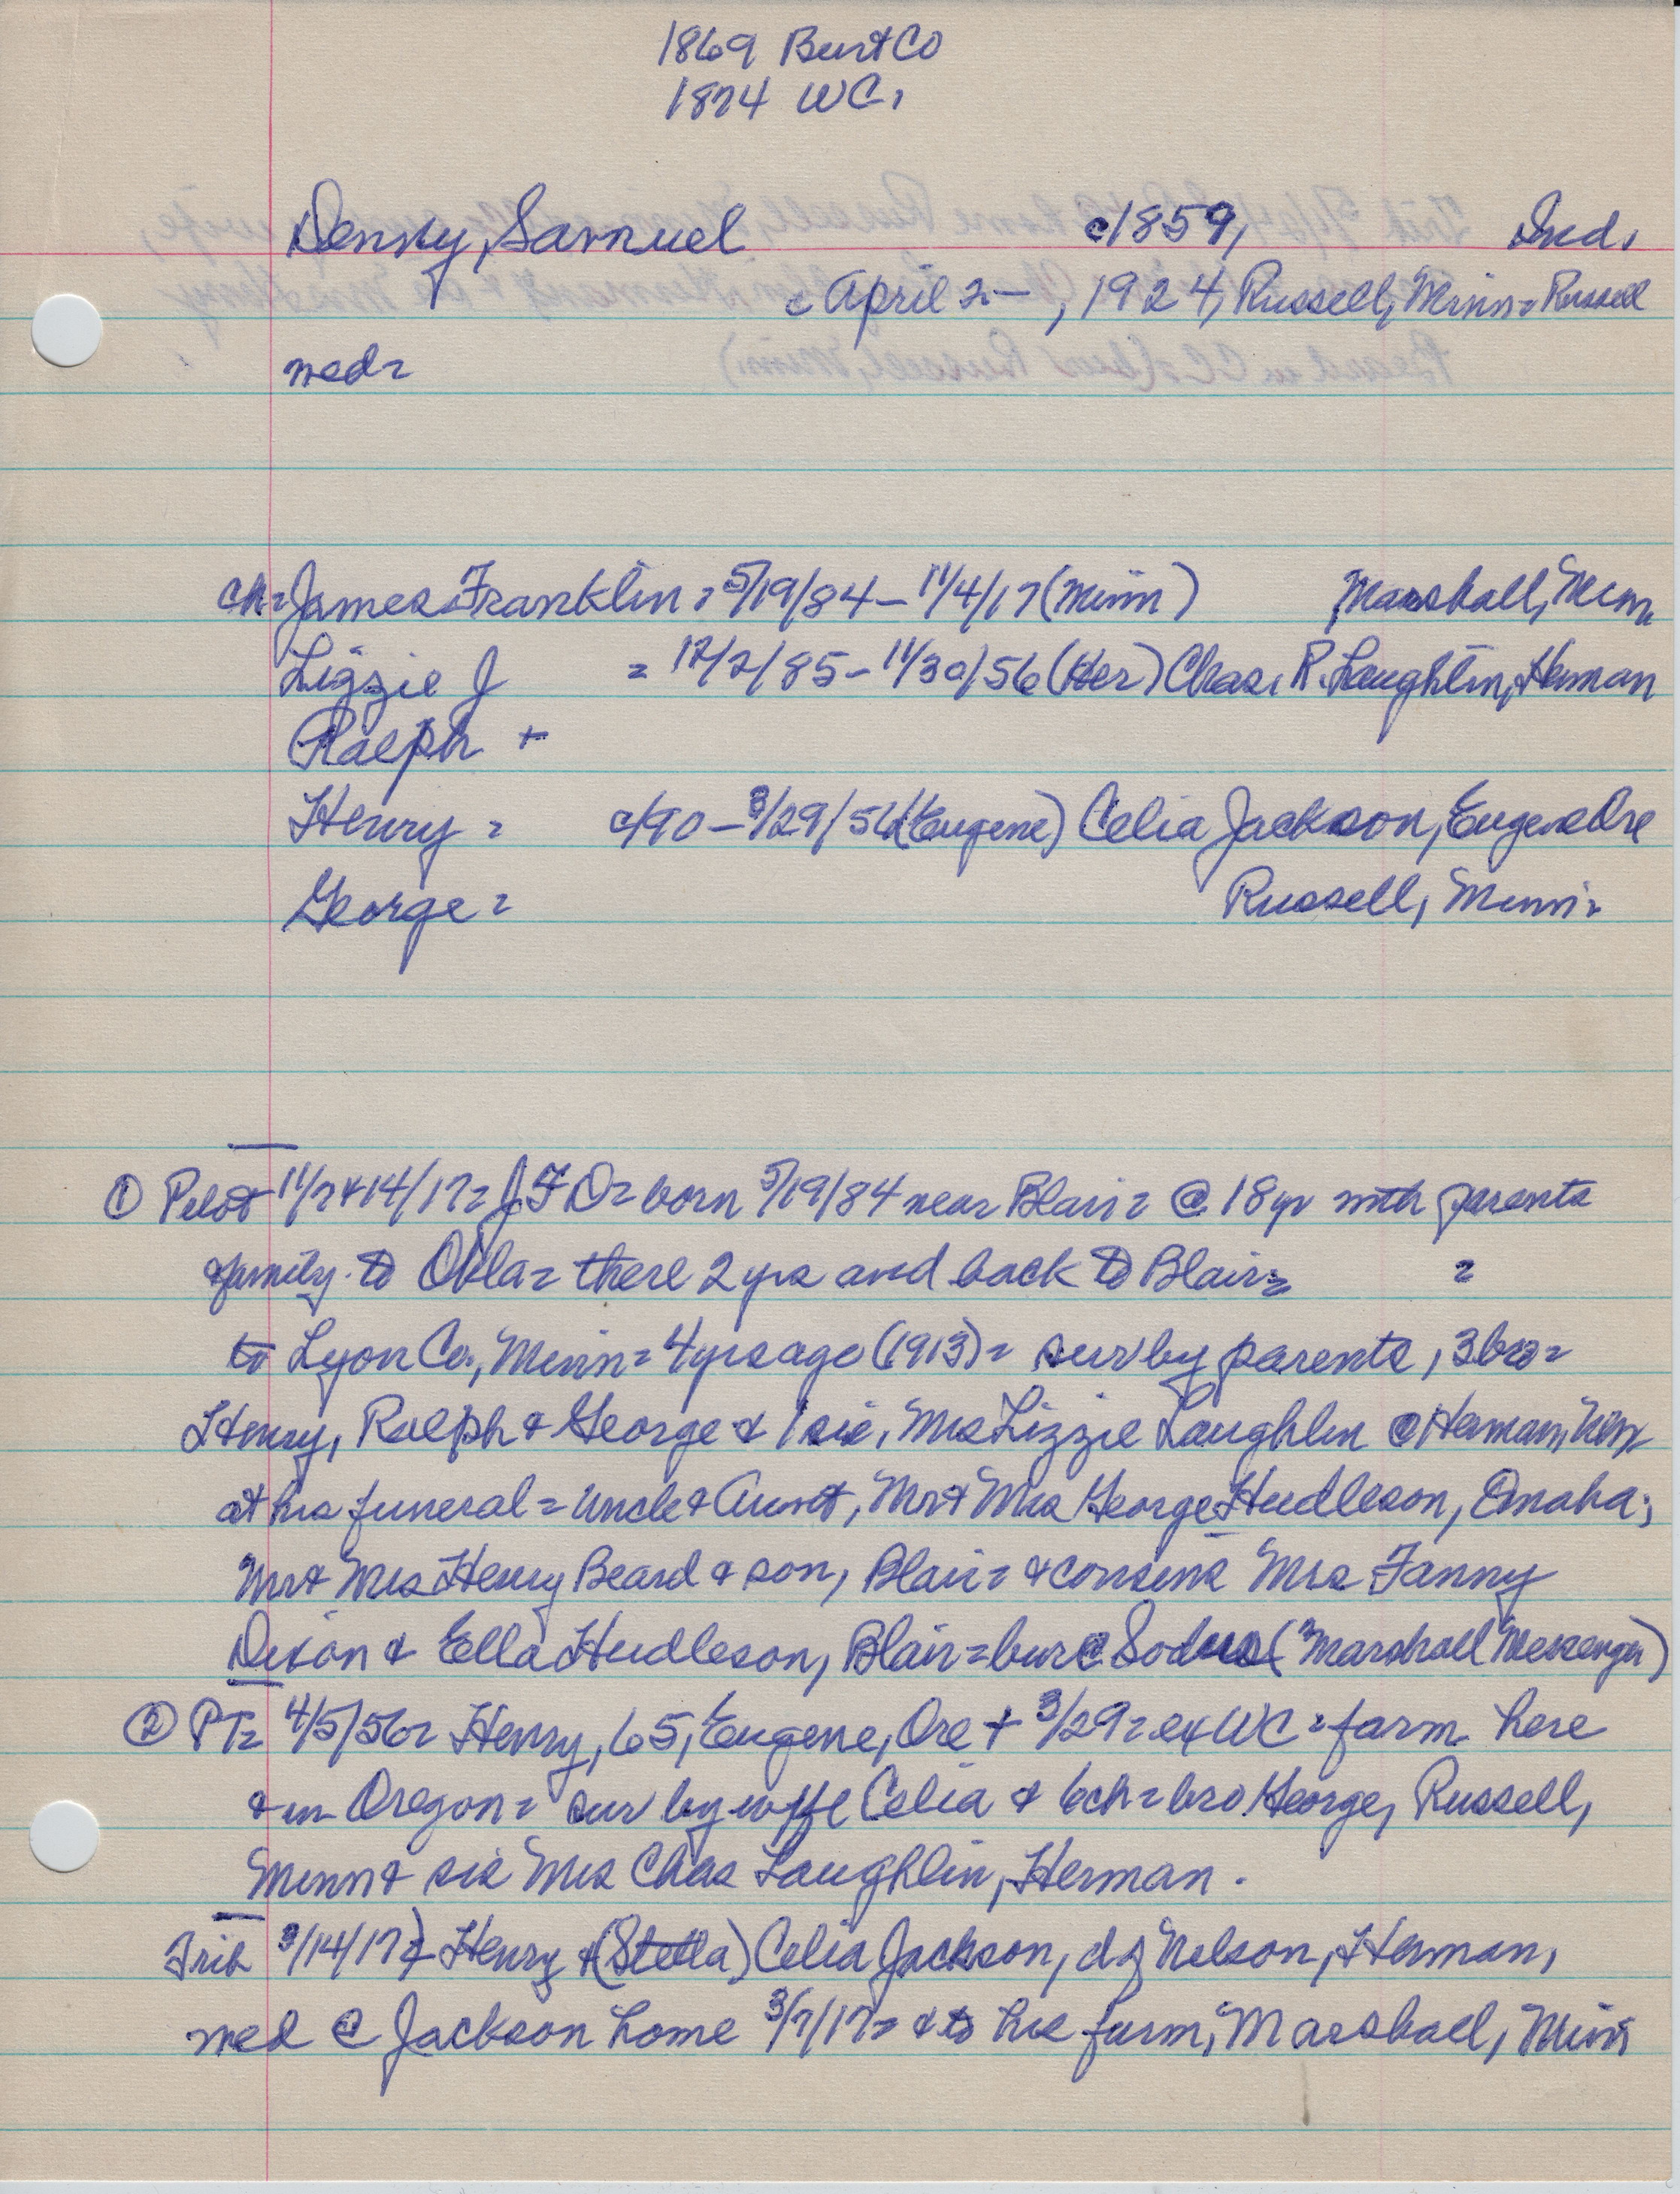 1869 Burt Co
1874 WC.
Denny, Samuel c1859, Ind.
c April 2—, 1924, Russell, Minn = Russell
med =
ch = James Franklin = 5/19/84 – 11/4/17 (Minn) Marshall, Minn
Lizzie J = 12/2/85 – 11/30/56 (Her) Chas. R. Laughlin, Herman
Ralph +
Henry = c/90 – 3/29/56 (Eugene) Celia Jackson, Eugene Ore
George = Russell, Minn =
① Pilot 11/7 & 14/17 = J F D = born 5/19/84 near Blair = @ 18 yr with parents
& family to Okla = there 2 yrs and back to Blair = =
to Lyon Co, Minn = 4 yrs ago (1913) = sur by parents, 3 bro =
Henry, Ralph & George & 1 sis, Mrs Lizzie Laughlin @ Herman, Neb
at his funeral = Uncle & Aunt, Mr & Mrs George Hudleson, Omaha;
Mr & Mrs Henry Beard & son, Blair = & cousins Mrs Fanny
Dixon & Ella Hudleson, Blair = bur @ Sodus (Marshall Messenger)
② PT = 4/5/56 = Henry, 65, Eugene, Ore + 3/29 = ex WC = farm here
& in Oregon = sur by wife Celia & 6 ch = bro George, Russell,
Minn & sis Mrs Chas Laughlin, Herman.
Trib 3/14/17 = Henry & (Stella) Celia Jackson, d of Nelson, Herman,
med @ Jackson home 3/7/17 = & to his farm, Marshall, Minn